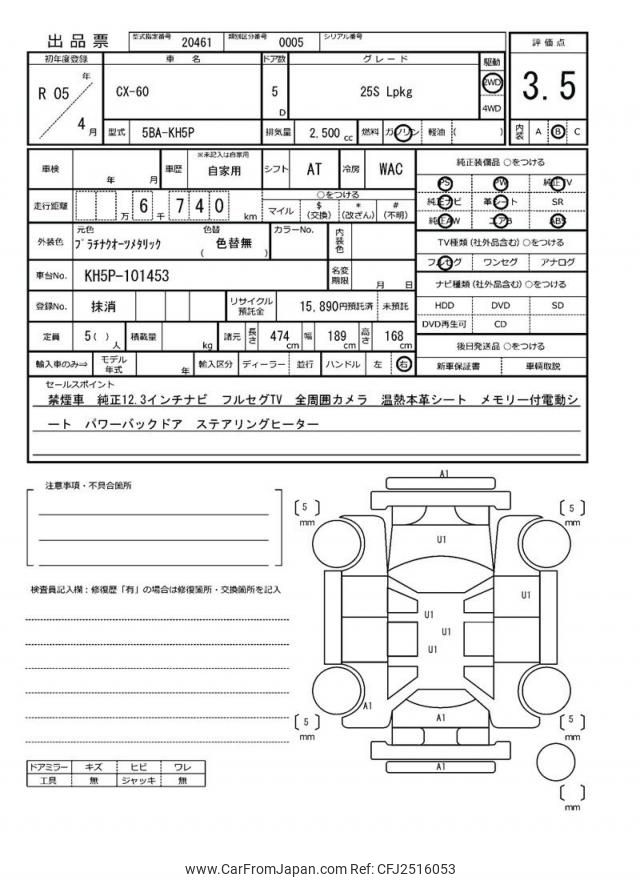 出品票 型式指定番号 20461 類別区分番号 0005 シリアル番号
初年度登録 車名 ドア数 グレード 駆動 評価点
R 05 年 4 月 CX-60 5 D 25S Lpkg 2WD 4WD 3.5
型式 5BA-KH5P 排気量 2,500 cc 燃料 ガソリン 軽油 ( ) 内装 A B C
車検 年 月 車歴 ※未記入は自家用 自家用 シフト AT 冷房 WAC 純正装備品 ○をつける
PS PW 純正TV
走行距離 万 6 千 7 4 0 km ○をつける 純正ナビ 革シート SR
マイル $ (交換) * (改ざん) # (不明) 純正AW エアB ABS
外装色 元色 プラチナクオーツメタリック 色替 ( 色替無 ) カラーNo. 内装色 TV種類(社外品含む)○をつける
フルセグ ワンセグ アナログ
車台No. KH5P-101453 名変期限 月 日 ナビ種類(社外品含む)○をつける
登録No. 抹消 リサイクル預託金 15,890円預託済 未預託 HDD DVD SD
DVD再生可 CD
定員 5( ) 人 積載量 kg 諸元 長さ 474 cm 幅 189 cm 高さ 168 cm 後日発送品 ○をつける
輸入車のみ⇒ モデル年式 年 輸入区分 ディーラー 並行 ハンドル 左 右 新車保証書 車輌取説
セールスポイント
禁煙車 純正12.3インチナビ フルセグTV 全周囲カメラ 温熱本革シート メモリー付電動シ
ート パワーバックドア ステアリングヒーター
注意事項・不具合箇所
検査員記入欄:修復歴「有」の場合は修復箇所・交換箇所を記入
A1
5 mm
5 mm
U1
U1
U1
U1
U1
A1
A1
5 mm
5 mm
A1
mm
ドアミラー キズ ヒビ ワレ
工具 無 ジャッキ 無
www.CarFromJapan.com Ref: CFJ2516053